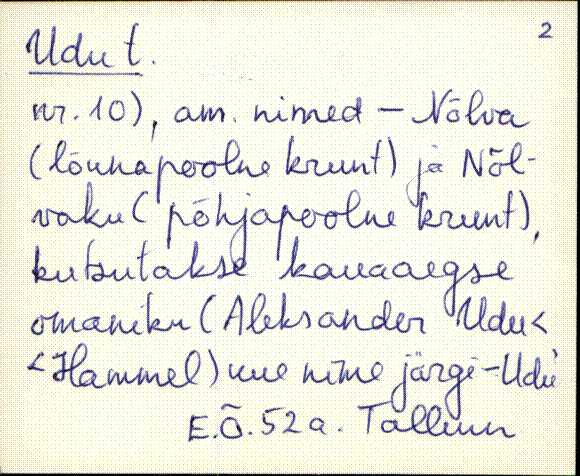 2
Udu t.
nr. 10), am. nimed – Nõlva
(lõunapoolne krunt) ja Nõl-
vaku (põhjapoolne krunt),
kutsutakse kauaaegse
omaniku (Aleksander Udu <
< Hammel) uue nime järgi – Udu
E.Õ. 52 a. Tallinn